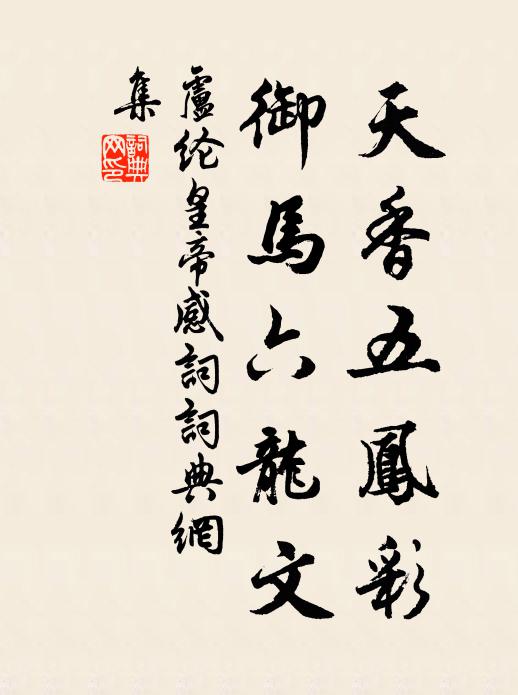 天香五鳳彩
御馬六龍文
盧纶皇帝感詞詞典網
集
詞典网印